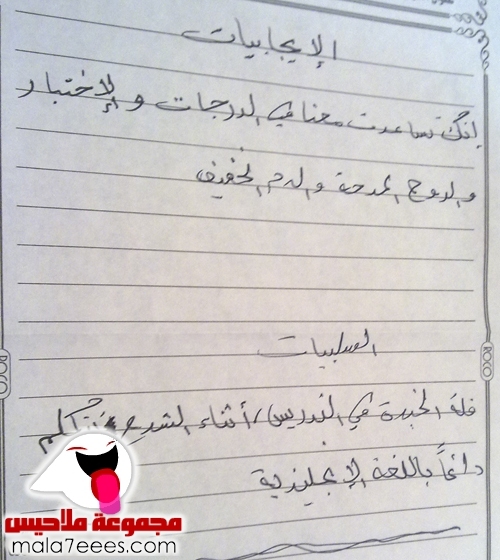 الإيجابيات
إنك تساعدت معنا في الدرجات والإختبار
والروح المرحة والدم الخفيف
السلبيات
قلة الخبرة في التدريس، أثناء الشرح تتكلم
دائماً باللغة الإنجليزية
ROCO
ROCO
مجموعة ملاحيس
mala7eees.com